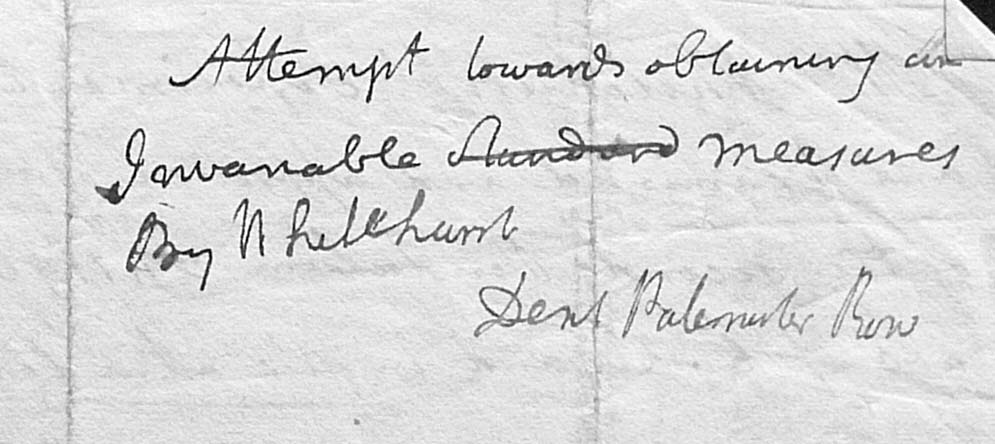 Attempt towards obtaining an
Invariable Standard measures
By Whitehurst
Dent Paternoster Row